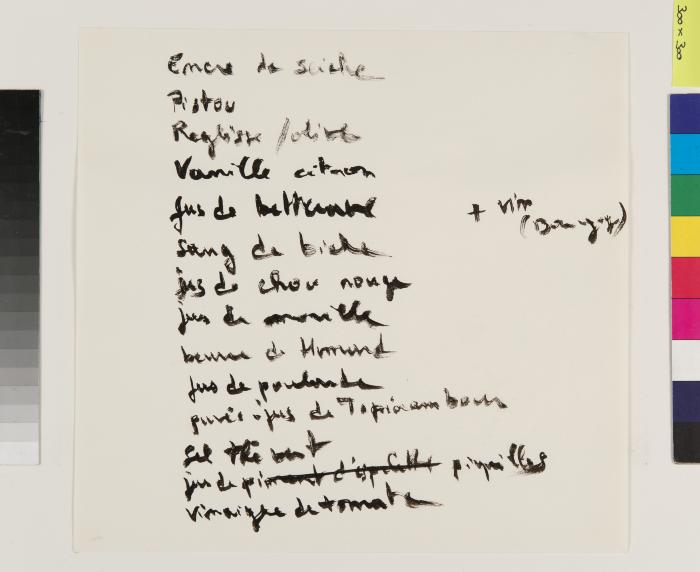 300 x 30
Encre de seiche
Pistou
Réglisse / olive
Vanille citron
jus de betterave + vin
sang de biche
jus de chou rouge
jus de morille
beurre de Homard
jus de poularde
purée jus de Topinambour
Gel thé vert
jus de piment d'espelette piquillos
vinaigre de tomate